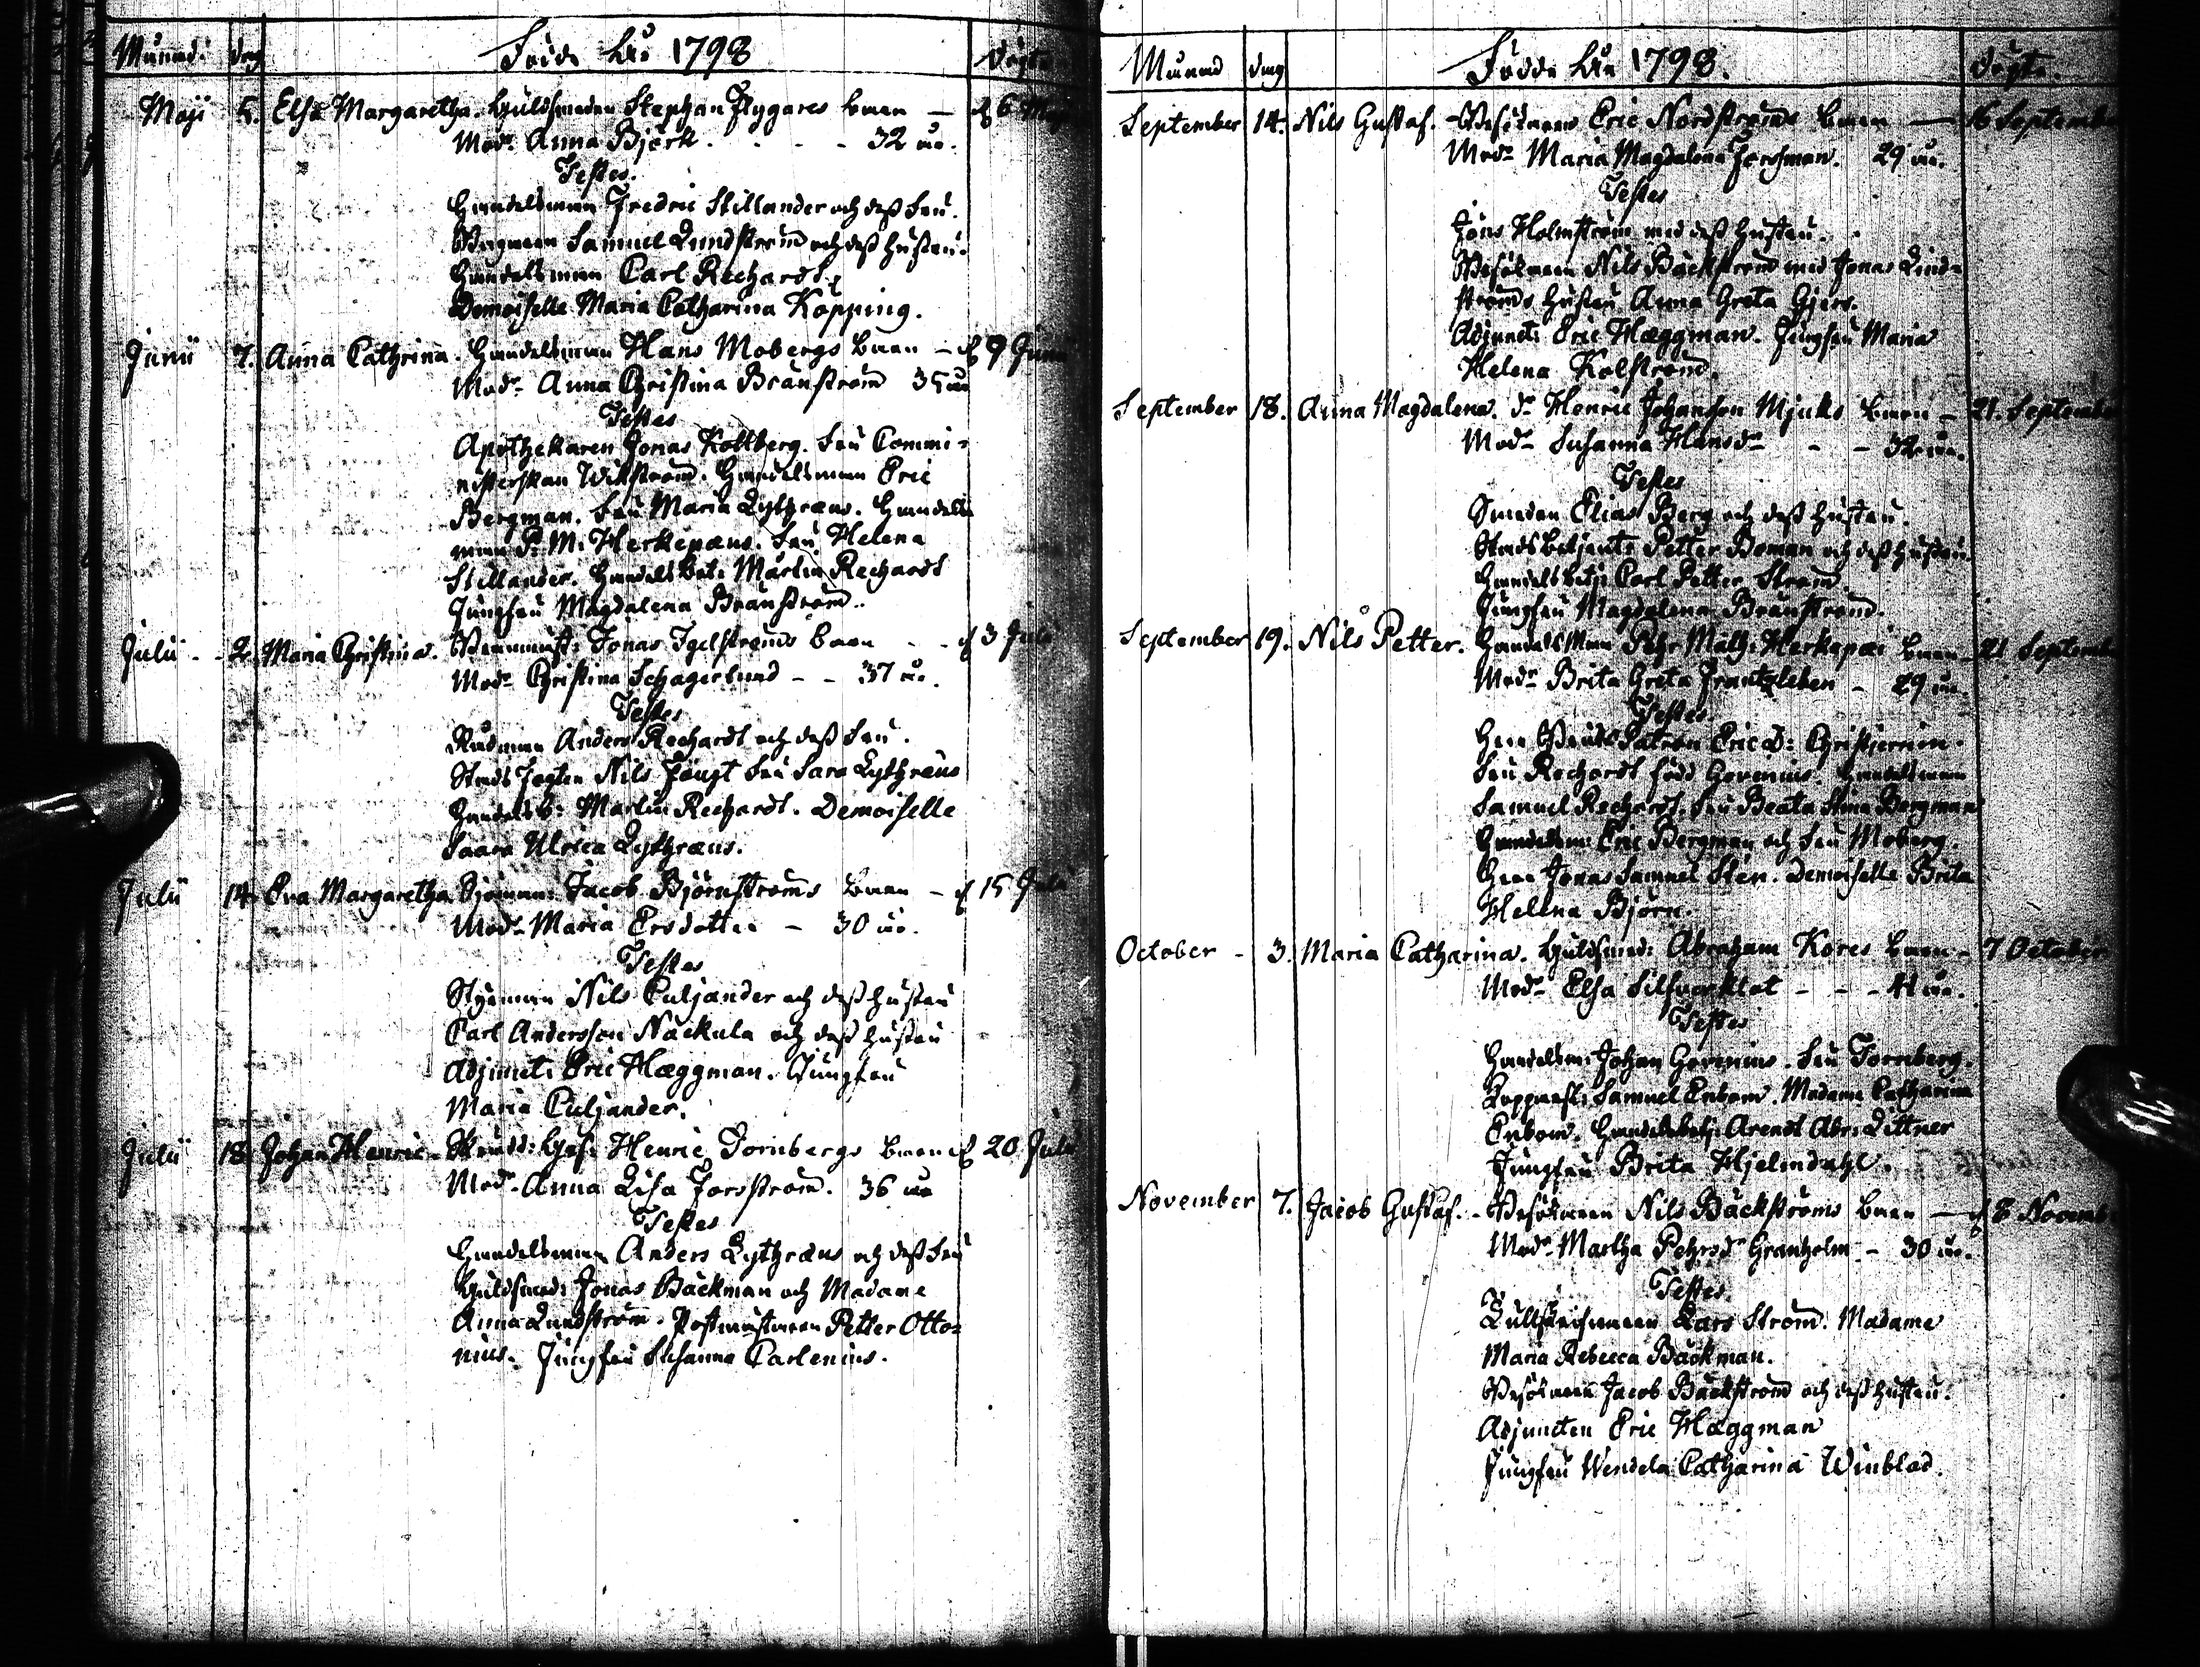 Månad: dag Födde åhr 1798 döpte
Maji 5. Elsa Margaretha. Guldsmeden Stephan Flygares barn — d 6 Maji
Modr Anna Björk. - - - 32 åhr.
Testes.
Handelsman Fredric Stillander och dess Fru.
Wagnaren Samuel Lundström och dess hustru.
Handelsman Carl Rechardt,
Demoiselle Maria Catharina Kopping.
Junii 7. Anna Cathrina. Handelsman Hans Mobergs barn — d 9 Junii
Modr Anna Christina Brånström 35 åhr
Testes
Apothekaren Jonas Koltberg. Fru Commi-
nisterskan Wikström. Handelsman Eric
Bergman. Fru Maria Lythræus. Handels
man P. M. Herkepæus. Fru Helena
Stillander. Handelsbet: Martin Rechardt
Jungfru Magdalena Brånström.
Julii - - 2. Maria Christina. Jonas Igelströms barn - - d 3 Julii
Modr Christina Schagerlund - - 37 år.
Testes
Rådman Anders Rechardt och dess Fru.
Stads Fogten Nils Fougt Fru Sara Lythræus
Handelsb: Martin Rechardt. Demoiselle
Saara Ulrica Lythræus.
Julii 14. Eva Margaretha Sjöman: Jacob Björnströms barn - d 15 Julii
Modr Maria Ersdotter - 30 år.
Testes
Styrman Nils Culjander och dess hustru
Carl Andersson Näckula och dess hustru
Adjunct: Eric Hæggman. Jungfru
Maria Culjander.
Julii 18. Johan Henric. Henric Tornbergs barn d 20 Julii
Modr Anna Lisa Forsström. 36 år
Testes
Handelsman Anders Lythræus och dess Fru
Guldsmed: Jonas Backman och Madame
Anna Lundström. Postmästaren Petter Otto-
nius. Jungfru Susanna Carlenius.
Månad dag Födde åhr 1798. döpte.
September 14. Nils Gustaf. - Besökaren Eric Nordströms barn — 16 September
Modr Maria Magdalena Forsman. 29 år.
Testes
Jöns Holmström med dess hustru.
Besökaren Nils Bäckström med Jonas Lind-
ströms hustru Anna Greta Gjers.
Adjunct: Eric Hæggman. Jungfru Maria
Helena Kolström.
September 18. Anna Magdalena. Henric Johansson Mjuks barn - 21. September
Modr Susanna Hansdr - - 32 år.
Testes
Smeden Elias Berg och dess hustru.
Stads Betjent: Petter Boman och dess hustru.
Handelsbetj: Carl Petter Ström.
Jungfru Magdalena Brånström.
September 19. Nils Petter. Handelsman Pehr Math: Herkepæi barn - 21 September
Modr Brita Greta Frantzleben - 29 år.
Testes
Herr Bruks Patron Eric A: Christjernin.
Fru Rechardt född Govenius. Handelsman
Samuel Rechardt. Fru Beata Stina Bergman
Handelsm: Eric Bergman och Fru Moberg.
Herr Jonas Samuel Sten. Demoiselle Brita
Helena Björn.
October - 3. Maria Catharina. Guldsmed: Abraham Kores barn - 7 October
Modr Elsa Silfverklot - - - 41 år.
Testes
Handelsm: Johan Govenius. Fru Tornberg.
Kopparsl: Samuel Enbom. Madame Catharina
Enbom. Handelsbetj: Arendt Abr: Littner
Jungfru Brita Hjelmdahl.
November 7. Jacob Gustaf. - Besökaren Nils Bäckströms barn — d 8 Novemb
Modr Martha Pehrsdr Granholm - 30 år.
Testes.
Lars Ström. Madame
Maria Rebecca Backman.
Besökaren Jacob Bäckström och dess hustru.
Adjuncten Eric Hæggman
Jungfru Wendela Catharina Winblad.